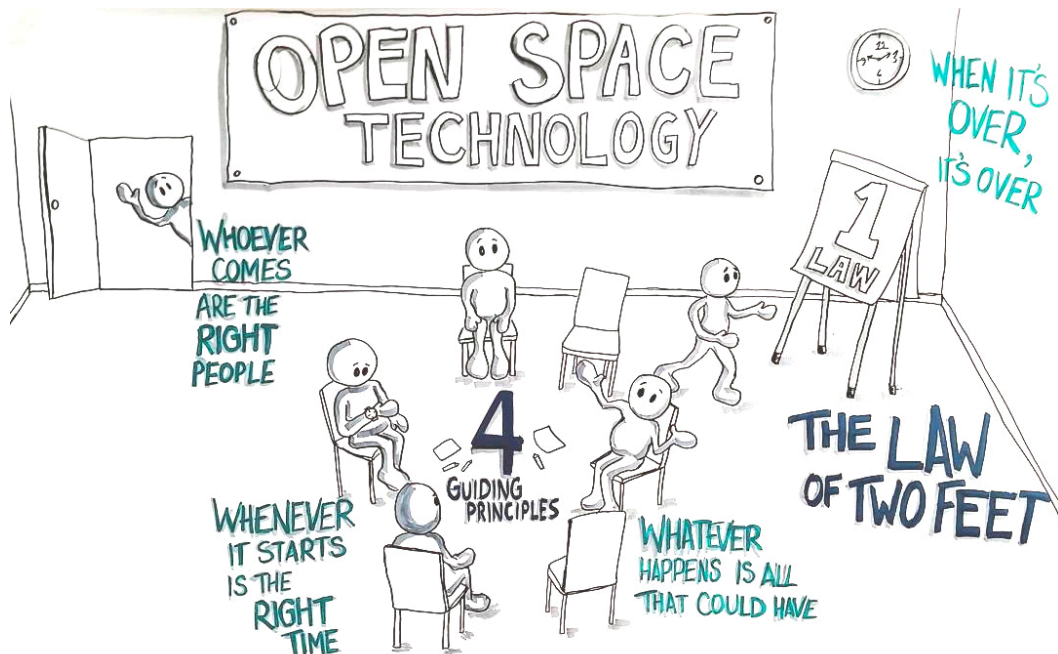 OPEN SPACE
TECHNOLOGY
12
3
6
9
WHEN IT'S
OVER,
IT'S OVER
WHOEVER
COMES
ARE THE
RIGHT
PEOPLE
1
LAW
THE LAW
OF TWO FEET
4
GUIDING
PRINCIPLES
WHENEVER
IT STARTS
IS THE
RIGHT
TIME
WHATEVER
HAPPENS IS ALL
THAT COULD HAVE